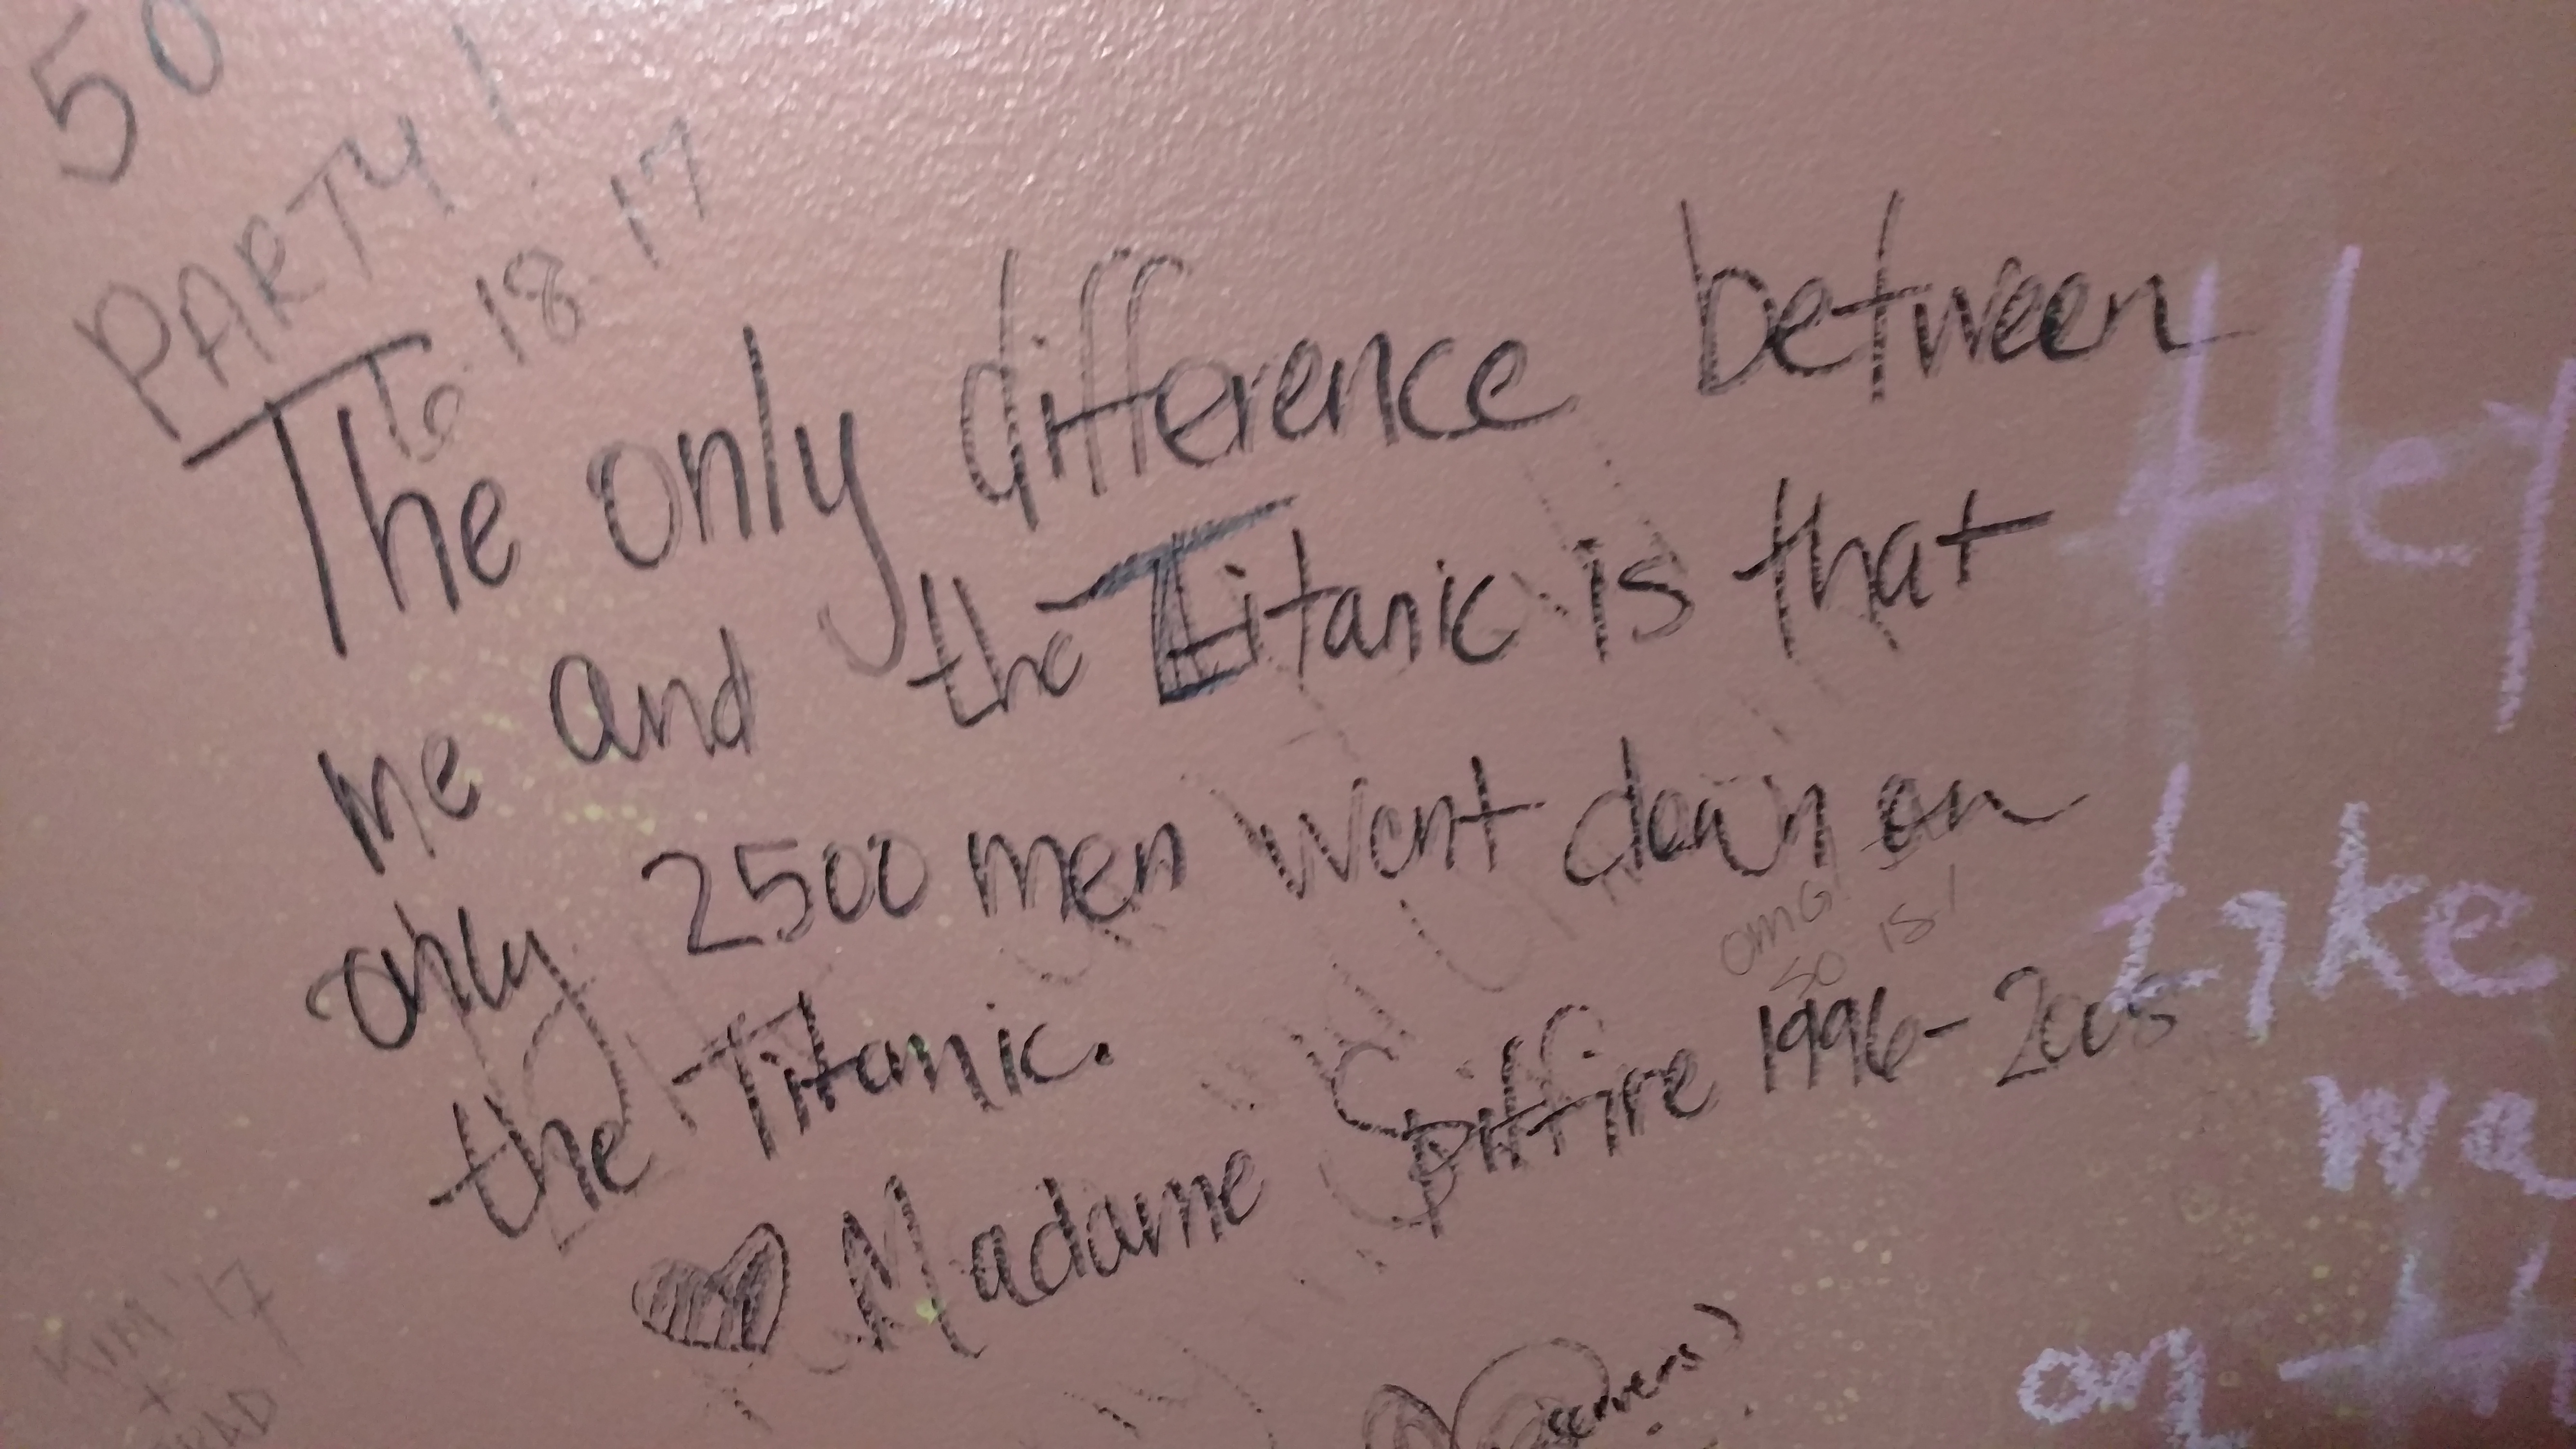 50
PARTY!
6.18.17
The only difference between
me and the Titanic is that
only 2500 men went down on
the Titanic.
OMG!
SO 18!
♥ Madame Spitfire 1996-2005
Hey
take
we
on
KIM '17
+
(servers)